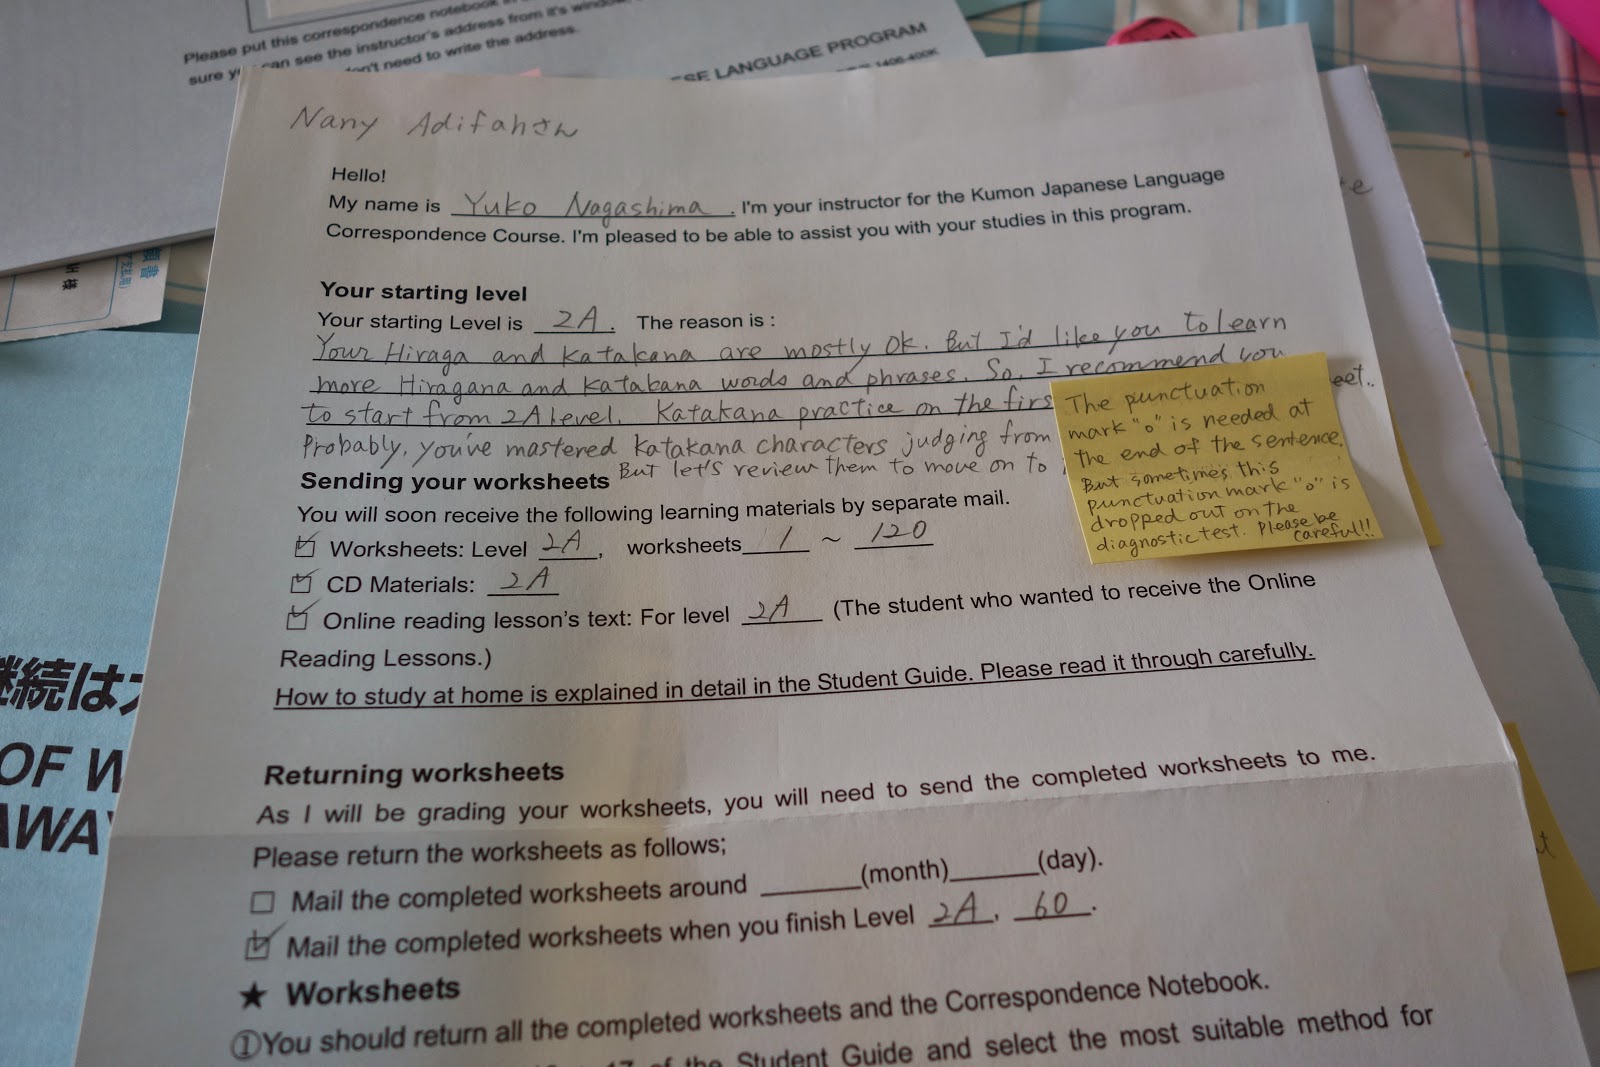 Please put this correspondence notebook in
can see the instructor's address from it's window
sure
don't need to write the address.
LANGUAGE PROGRAM
1406-400K
Nany Adifahさん
Hello!
My name is Yuko Nagashima. I'm your instructor for the Kumon Japanese Language
Correspondence Course. I'm pleased to be able to assist you with your studies in this program.
Your starting level
Your starting Level is 2A. The reason is :
Your Hiraga and Katakana are mostly OK. But I'd like you to learn
more Hiragana and Katakana words and phrases. So, I recommend you
to start from 2A level. Katakana practice on the firs
eet..
Probably, you've mastered Katakana characters judging from
But let's review them to move on to
The punctuation
mark "o" is needed at
the end of the sentence.
But sometimes this
punctuation mark "o" is
dropped out on the
diagnostic test. Please be
careful!!
Sending your worksheets
You will soon receive the following learning materials by separate mail.
Worksheets: Level 2A, worksheets 1 ~ 120
CD Materials: 2A
Online reading lesson's text: For level 2A (The student who wanted to receive the Online
Reading Lessons.)
How to study at home is explained in detail in the Student Guide. Please read it through carefully.
Returning worksheets
As I will be grading your worksheets, you will need to send the completed worksheets to me.
Please return the worksheets as follows;
Mail the completed worksheets around ______(month)______(day).
Mail the completed worksheets when you finish Level 2A, 60.
★ Worksheets
①You should return all the completed worksheets and the Correspondence Notebook.
17 of the Student Guide and select the most suitable method for
継続は
OF W
AWAY
願書